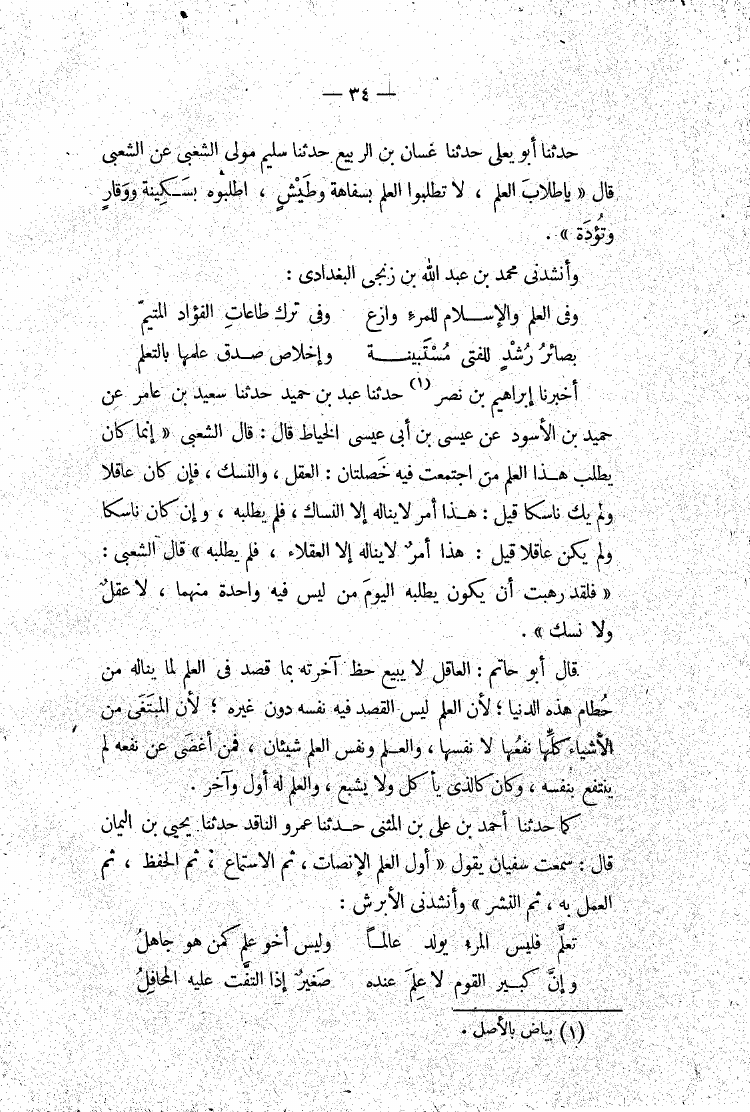 — ٣٤ —
حدثنا أبو يعلى حدثنا غسان بن الربيع حدثنا سليم مولى الشعبى عن الشعبى
قال « ياطلابَ العلم ، لا تطلبوا العلم بسفاهة وطَيْشٍ ، اطلبُوه بسَـكِينة ووَقارٍ
وتُؤدَة » .
وأنشدنى محمد بن عبد الله بن زنجى البغدادى :
وفى العلم والإســلام للمرءِ وازع وفى ترك طاعاتِ الفؤاد المتيمّ
بصائرُ رُشْدٍ للفتى مُسْتَبينــة وإخلاص صـدق علمها بالتعلم
أخبرنا إبراهيم بن نصر (١) حدثنا عبد بن حميد حدثنا سعيد بن عامر عن
حميد بن الأسود عن عيسى بن أبى عيسى الخياط قال : قال الشعبى « إنما كان
يطلب هـذا العلم من اجتمعت فيه خَصلتان : العقل ، والنسك ، فإن كان عاقلا
ولم يك ناسكا قيل : هـذا أمر لايناله إلا النساك ، فلم يطلبه ، وإن كان ناسكا
ولم يكن عاقلا قيل : هذا أمرٌ لايناله إلا العقلاء ، فلم يطلبه » قال الشعبى :
« فلقد رهبت أن يكون يطلبه اليومَ من ليس فيه واحدة منهما ، لا عقلٌ
ولا نسك » .
قال أبو حاتم : العاقل لا يبيع حظ آخرته بما قصد فى العلم لما يناله من
حُطام هذه الدنيا ؛ لأن العلم ليس القصد فيه نفسه دون غيره ؛ لأن المبتَغَى من
الأشياء كلِّها نفعُها لا نفسها ، والعـلم ونفس العلم شيئان ، فمن أغضَى عن نفعه لم
ينتفع بنفسه ، وكان كالذى يأكل ولا يشبع ، والعلم له أول وآخر .
كما حدثنا أحمد بن على بن المثنى حـدثنا عمرو الناقد حدثنا يحيى بن اليمان
قال : سمعت سفيان يقول « أول العلم الإنصات ، ثم الاستماع ، ثم الحفظ ، ثم
العمل به ، ثم النشر » وأنشدنى الأبرش :
تعلَّم فليس المرء يولد عالمـاً وليس أخو علم كمن هو جاهلُ
وإنَّ كبـير القوم لا عِلمَ عنده صَغيرٌ إذا التفَّت عليه المحافِلُ
(١) بياض بالأصل .